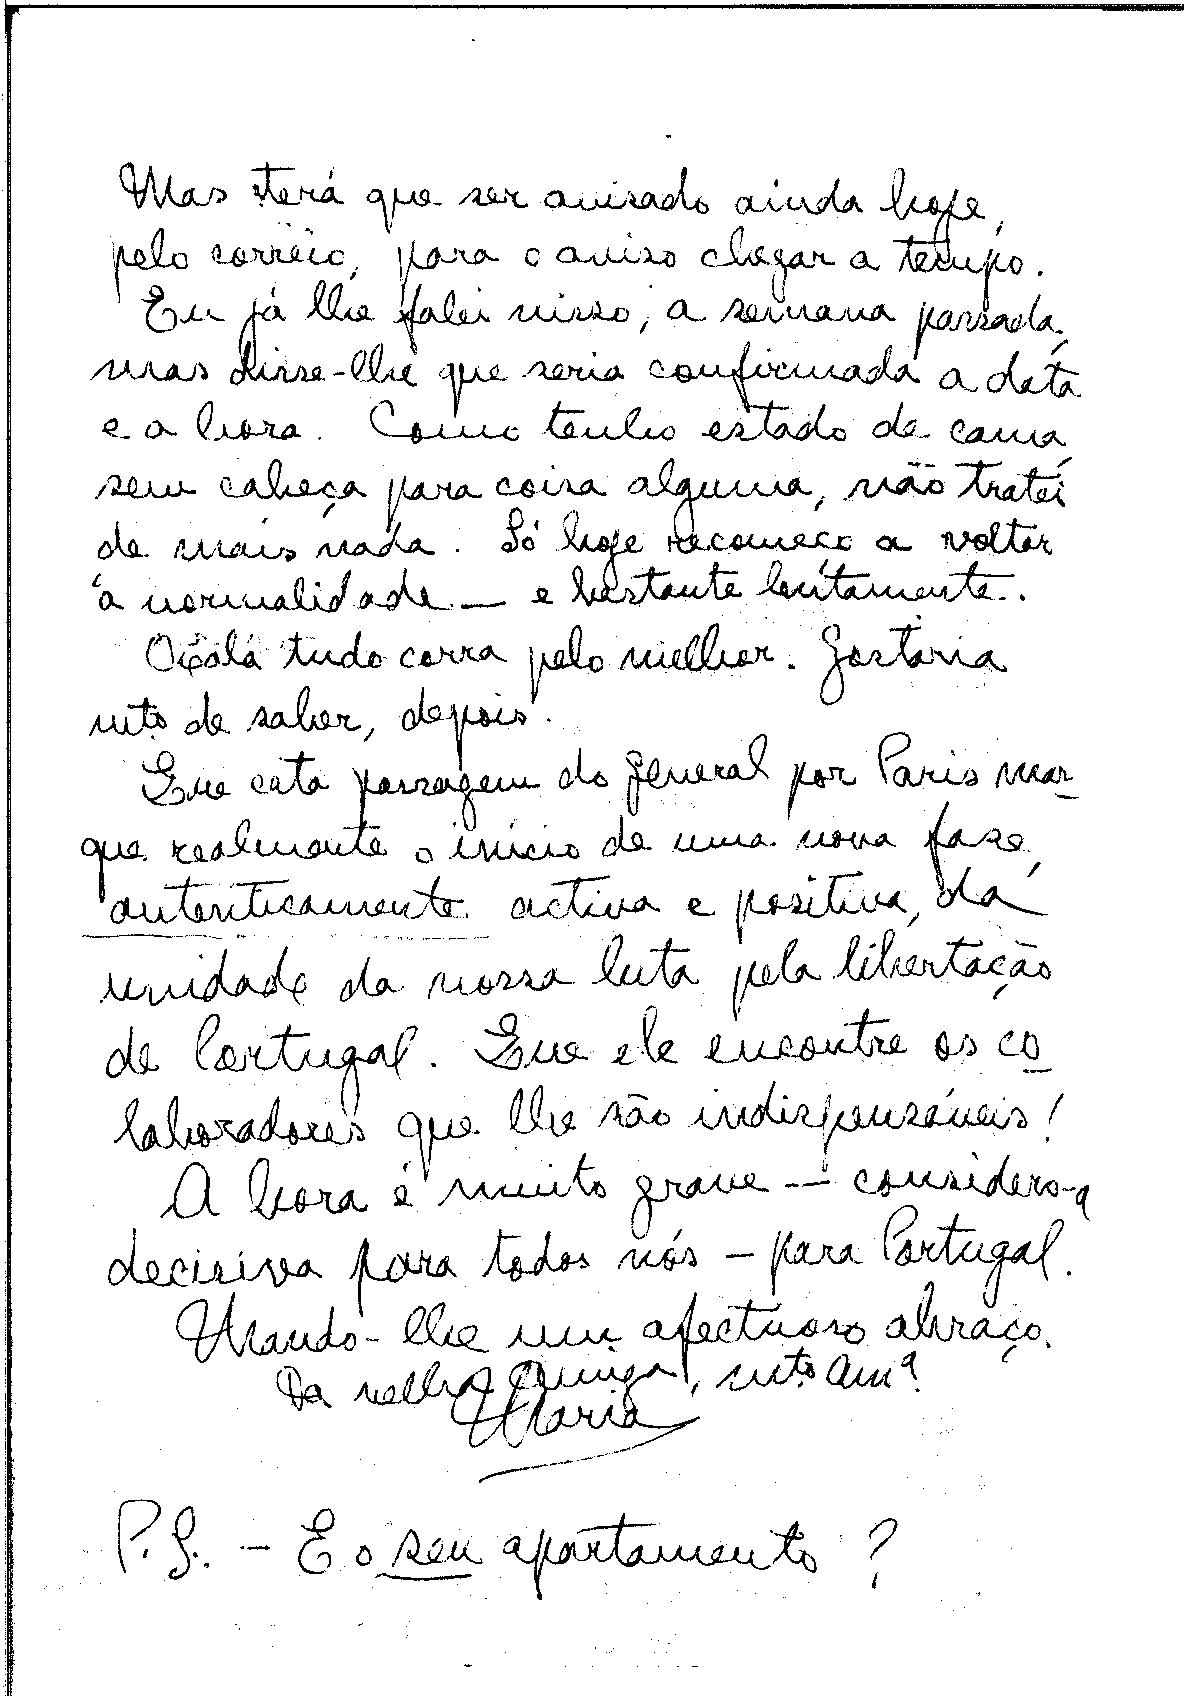 Mas terá que ser avisado ainda hoje,
pelo correio, para o aviso chegar a tempo.
Eu já lhe falei nisso, a semana passada,
mas disse-lhe que seria confirmada a data
e a hora. Como tenho estado de cama,
sem cabeça para coisa alguma, não tratei
de mais nada. Só hoje recomeço a voltar
à normalidade — e bastante lentamente.
Oxalá tudo corra pelo melhor. Gostaria
mtº de saber, depois.
Que esta passagem do General por Paris mar-
que realmente o início de uma nova fase,
autenticamente activa e positiva, da
unidade da nossa luta pela libertação
de Portugal. Que ele encontre os co-
laboradores que lhe são indispensáveis!
A hora é muito grave — considero-a
decisiva para todos nós — para Portugal.
Mando-lhe um afectuoso abraço.
Da velha Amiga, mtº Amª.
Maria
P.S. — E o seu apartamento ?